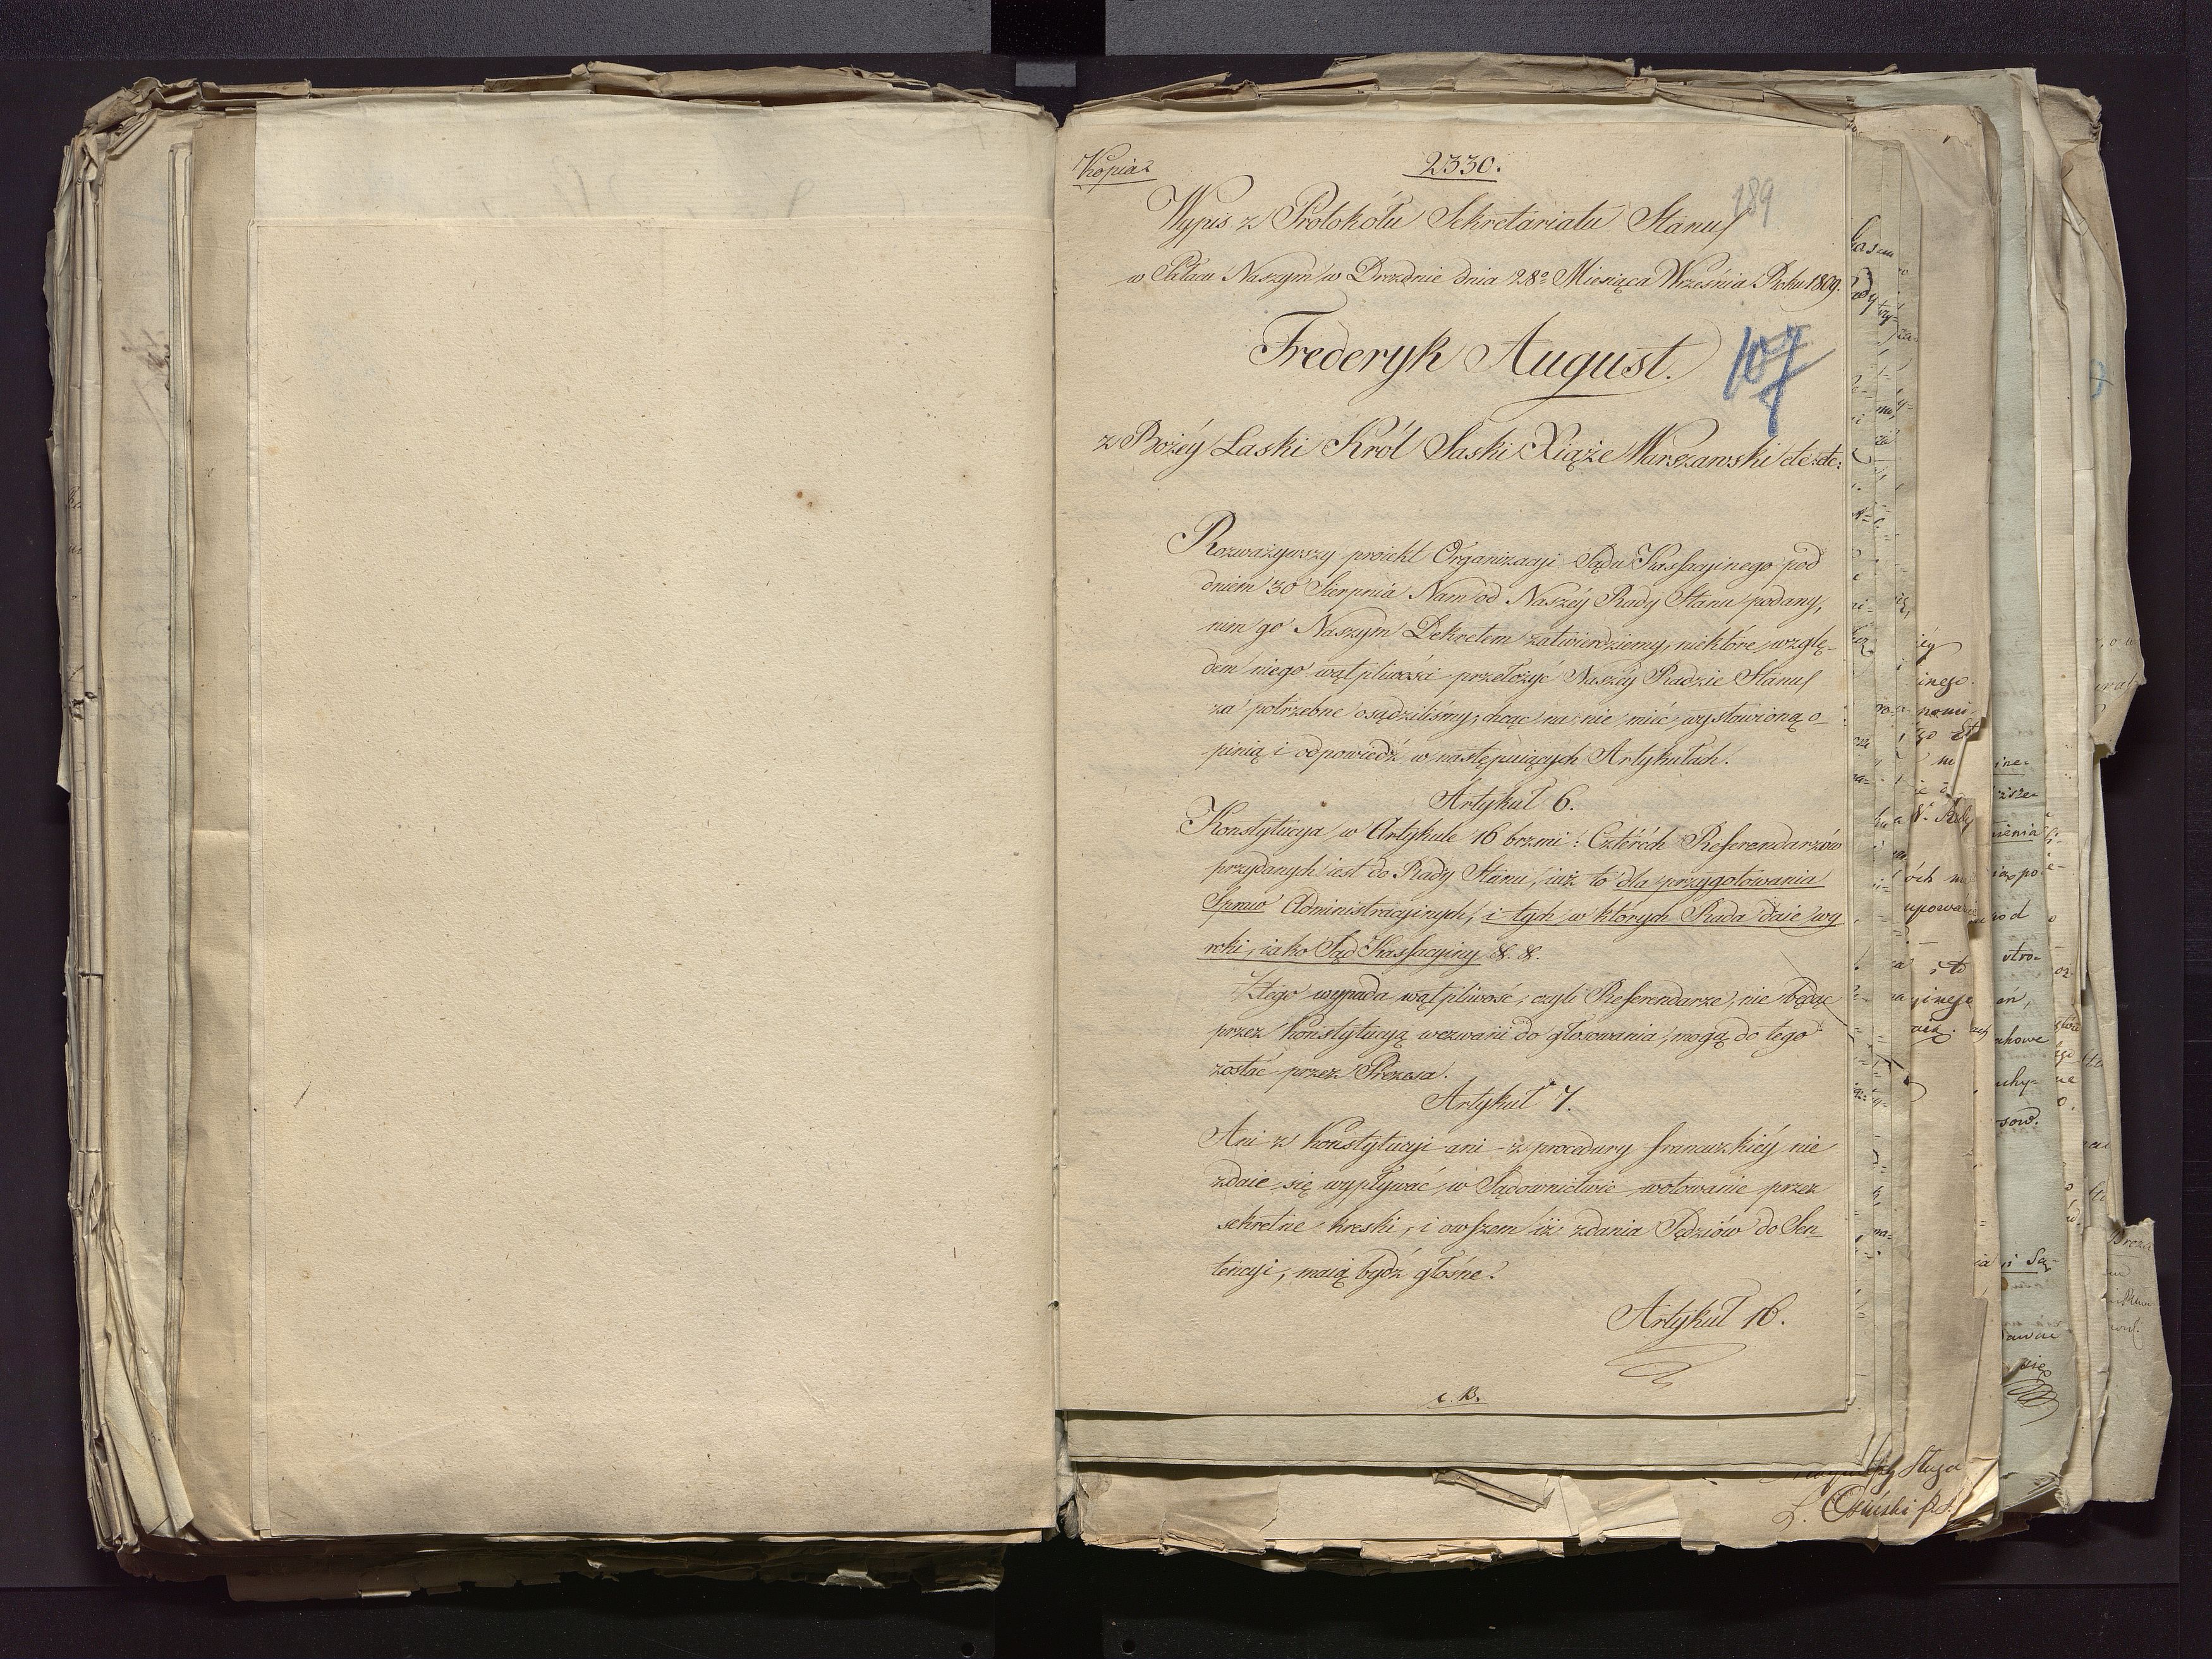 Kopia
2330.
189
Wypis z Protokołu Sekretariatu Stanu
w Pałacu Naszym w Dreznie dnia 28º Miesiąca Września Roku 1809.
Frederyk August.
107
z Bożéy Łaski Król Saski Xiąże Warszawski etc: etc:
Rozważywszy proiekt Organizacyi Sądu Kassacyinego pod
dniem 30 Sierpnia Nam od Naszéy Rady Stanu podany,
nim go Naszym Dekretem zatwierdziemy, niektóre wzglę-
dem niego wątpliwości przełożyć Naszéy Radzie Stanu
za potrzebne osądziliśmy, chcąc na nie mieć wystawioną o-
pinią i odpowiedź w następuiących Artykułach.
Artykuł 6.
Konstytucya w Artykule 16 brzmi: Cztérech Referendarzów
przydanych iest do Rady Stanu, iuż to dla przygotowania
Spraw Administracyinych, i tych w których Rada daie wy
roki, iako Sąd Kassacyiny &. &.
Z tego wypada wątpliwość, czyli Referendarze, nie będąc
przez konstytucyą wezwani do głosowania, mogą do tego
zostać przez Prezesa.
Artykuł 7.
Ani z konstytucyi ani z procedury francuzkiéy nie
zdaie się wypływać w Sądownictwie wotowanie przez
sekretne kreski, i owszem iż zdania Sędziów do Sen-
tencyi, maią bydź głośne.
Artykuł 16.